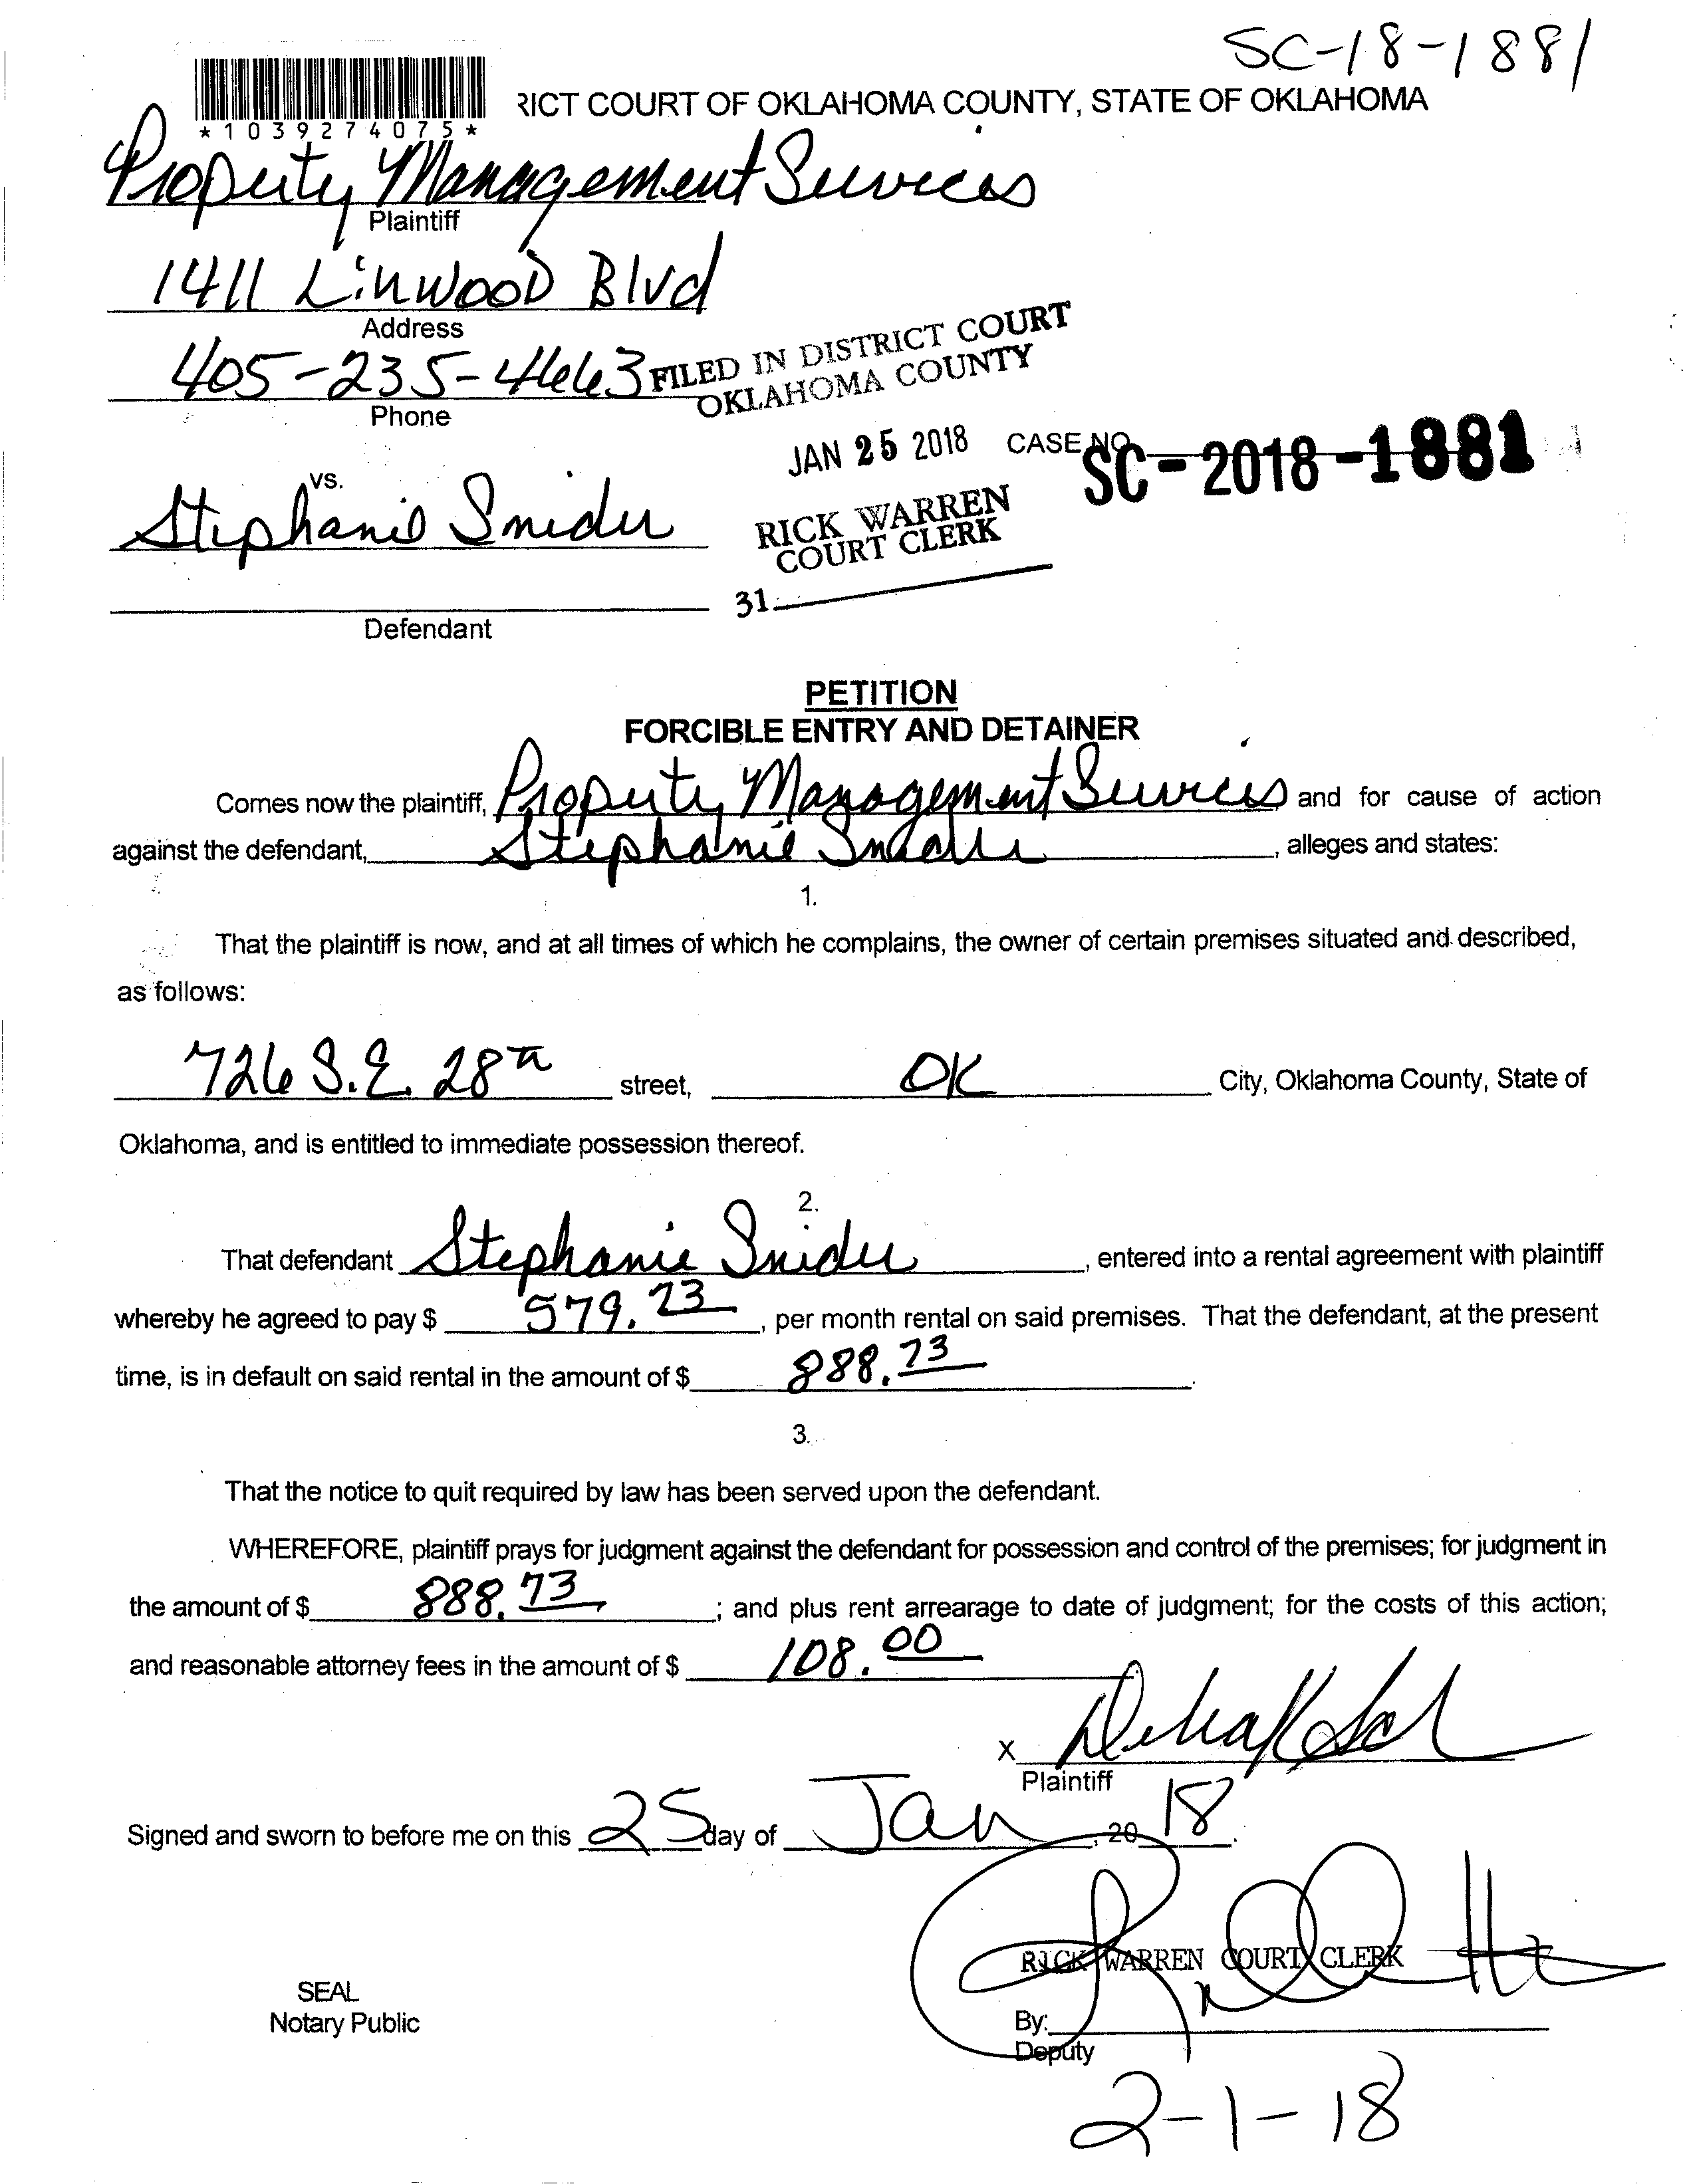 SC-18-1881
*1039274075*
RICT COURT OF OKLAHOMA COUNTY, STATE OF OKLAHOMA
Property Management Services
Plaintiff
1411 Linwood Blvd
Address
405-235-4663
Phone
FILED IN DISTRICT COURT
OKLAHOMA COUNTY
JAN 25 2018
CASE NO.
SC-2018-1881
RICK WARREN
COURT CLERK
31
vs.
Stephanie Snider
Defendant
PETITION
FORCIBLE ENTRY AND DETAINER
Comes now the plaintiff, Property Management Services and for cause of action
against the defendant, Stephanie Snider, alleges and states:
1.
That the plaintiff is now, and at all times of which he complains, the owner of certain premises situated and described,
as follows:
726 S.E. 28th street, OK City, Oklahoma County, State of
Oklahoma, and is entitled to immediate possession thereof.
2.
That defendant Stephanie Snider, entered into a rental agreement with plaintiff
whereby he agreed to pay $ 579.23, per month rental on said premises. That the defendant, at the present
time, is in default on said rental in the amount of $ 888.73.
3.
That the notice to quit required by law has been served upon the defendant.
WHEREFORE, plaintiff prays for judgment against the defendant for possession and control of the premises; for judgment in
the amount of $ 888.73; and plus rent arrearage to date of judgment; for the costs of this action;
and reasonable attorney fees in the amount of $ 108.00
X
Plaintiff
Signed and sworn to before me on this 25 day of Jan, 20 18.
RICK WARREN COURT CLERK
SEAL
Notary Public
By:
Deputy
2-1-18